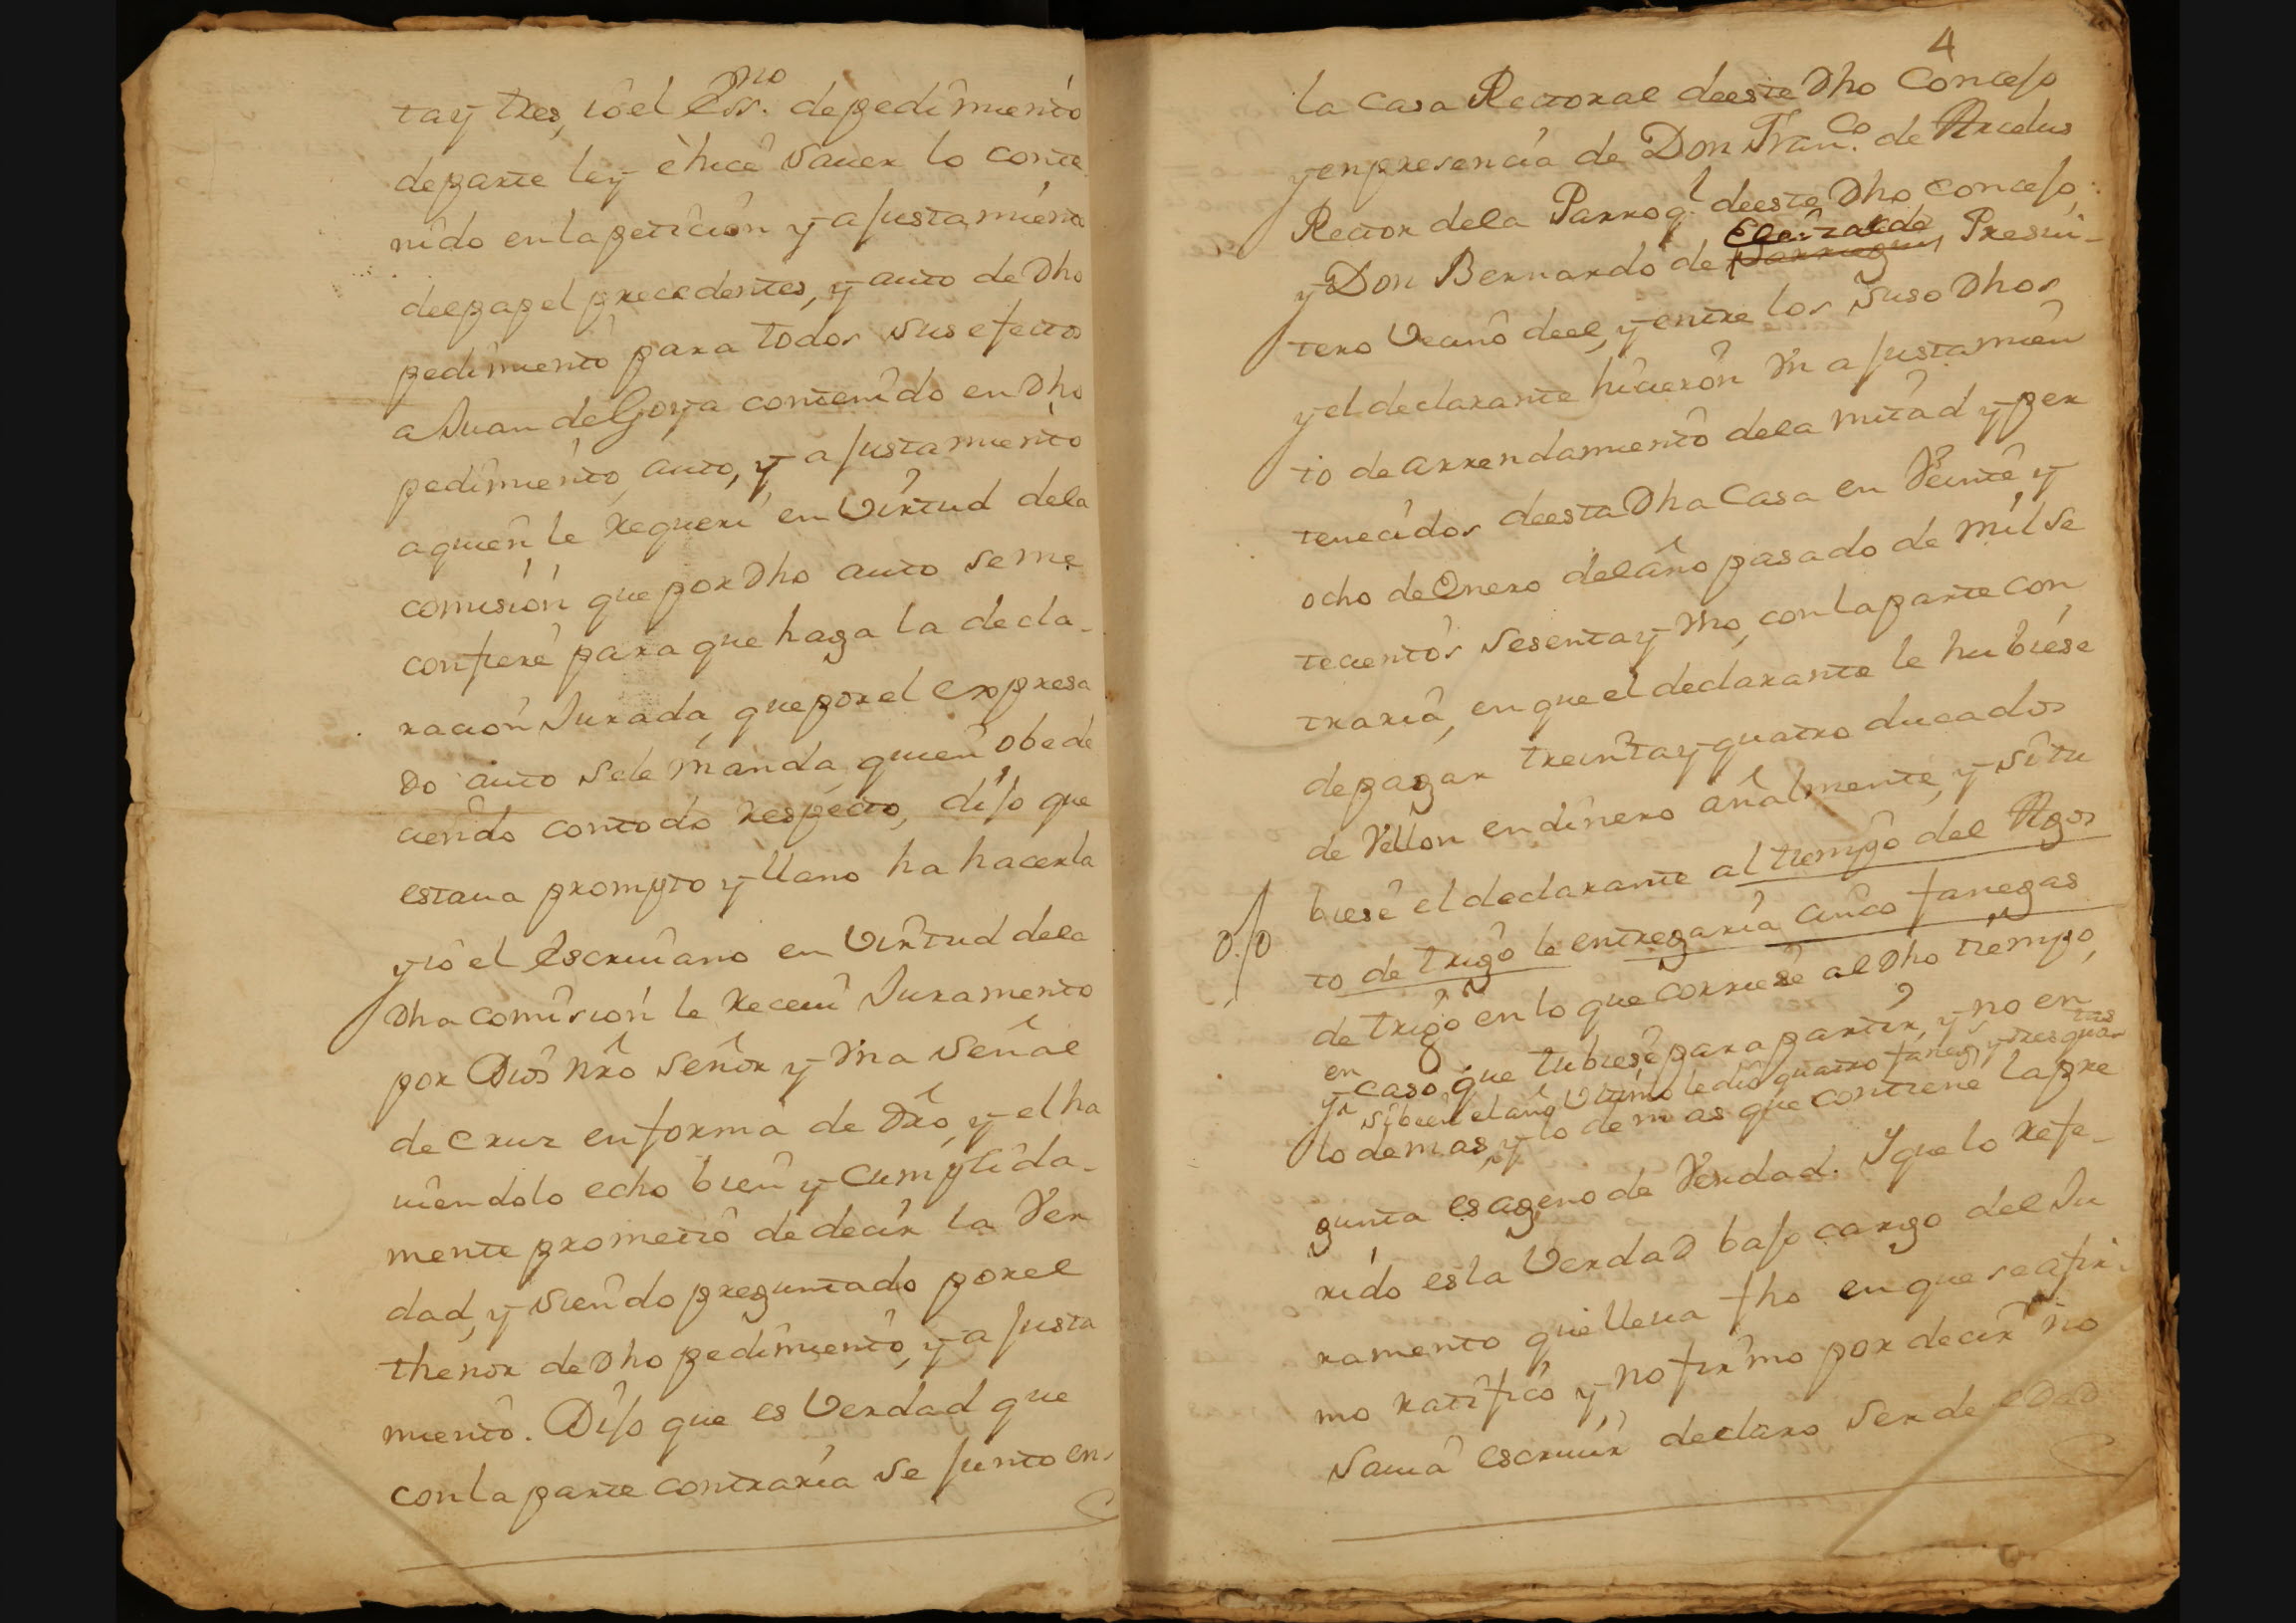 tay tres, io el Essno. de pedimiento
de parte ley è hice Sauer lo conte
nido en la peticion y ajustamiento
deel papel precedentes, y auto de Dho
pedimiento para todos sus efectos
a Juan de Goya contenido en Dho
pedimiento, auto, y ajustamiento
a quien le Requeri en Virtud dela
comision que por Dho auto se me
confiere para que haga la decla-
racion Jurada que por el expresa
do auto se le manda quien obede
ciendo con todo Respecto, dijo que
estaua prompto y llano ha hacerla
y io el escriuano en Virtud dela
Dha comision le Receui Juramento
por Dios Nrô Señor y Vna Señal
de Cruz en forma de Drô, y el ha
uiendolo echo bien y Cumplida-
mente prometio de decir la Ver
dad, y siendo preguntado por el
thenor de Dho pedimiento, y ajusta
miento. Dijo que es Verdad que
con la parte contraria se junto en
4
la Casa Rectoral deeste Dho Concejo
y en presencia de Don Franco. de Arcelus
Rector dela Parroql. deeste Dho Concejo,
Elizalde
y Don Bernardo de Presui-
tero Vecino deel, y entre los suso Dhos
y el declarante hicieron Vn ajustamien
to de arrendamiento dela mitad y per
tenecidos deesta Dha Casa en Veinte y
ocho de Enero del año pasado de mil se
tecientos sesenta y Vno, con la parte con
traria, en que el declarante le hubiese
de pagar treinta y quatro ducados
de Vellon en dinero añalmente, y si tu
biese el declarante al tiempo del Agos
to de trigo le entregaria cinco fanegas
de trigo en lo que corriese al Dho tiempo,
en caso que tubiese para partir, y no en
tas
y si bien el año Vltimo le dio quatro faneg. y tres quar
lo demas, y lo demas que contiene la pre
gunta es ageno de Verdad. Y que lo Refe-
rido es la Verdad bajo cargo del Ju
ramento que lleua fho en que se afir-
mo ratifico y no firmo por decir no
Sauia escriuir declaro Ser de edad